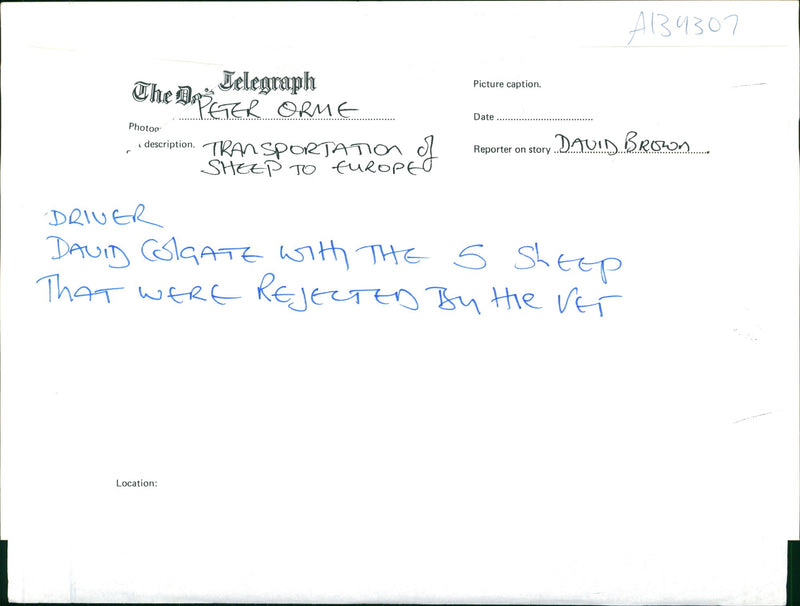 A134307
The Da Telegraph
PETER ORME
Photo
description. TRANSPORTATION of
SHEEP TO EUROPE
Picture caption.
Date
Reporter on story DAVID BROWN
DRIVER
DAVID COLGATE WITH THE 5 SHEEP
THAT WERE REJECTED BY THE VET
Location: